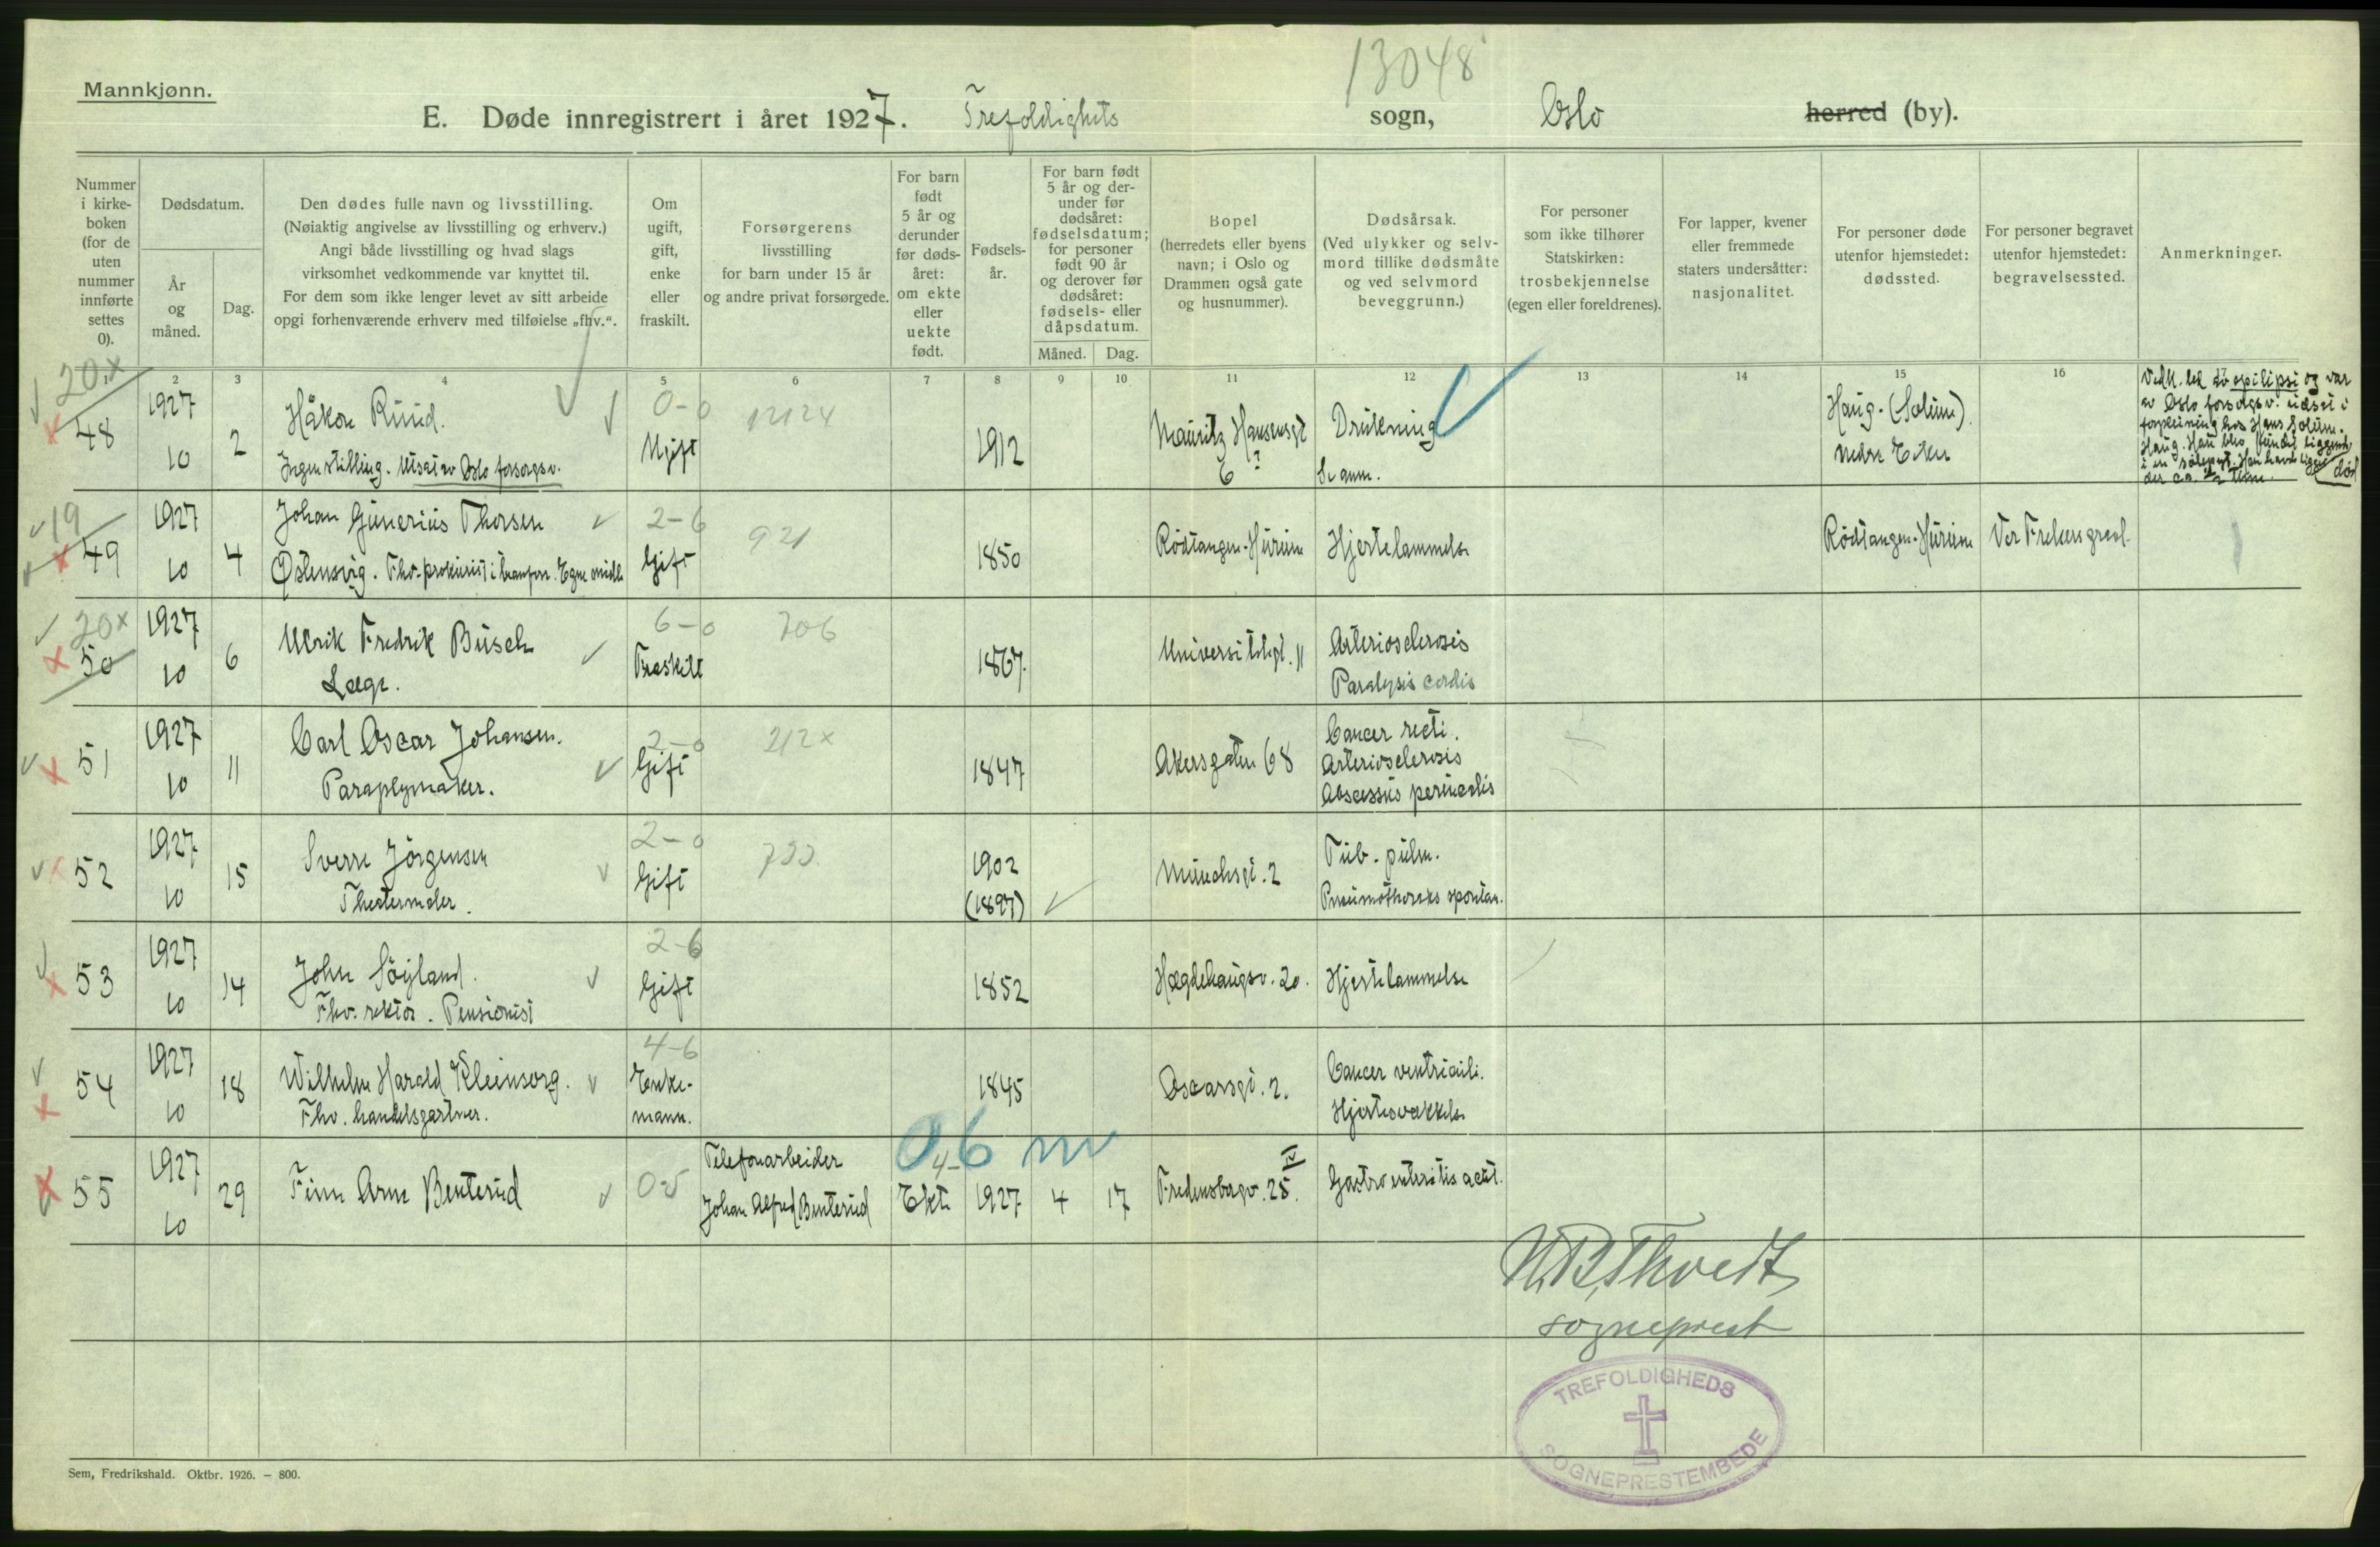 13048
Mannkjønn.
E. Døde innregistrert i året 1927. Trefoldighets sogn, Oslo herred (by).
Nummer i kirke-boken (for de uten nummer innførte settes 0).
Dødsdatum.
År og måned.
Dag.
Den dødes fulle navn og livsstilling.
(Nøiaktig angivelse av livsstilling og erhverv.)
Angi både livsstilling og hvad slags
virksomhet vedkommende var knyttet til.
For dem som ikke lenger levet av sitt arbeide
opgi forhenværende erhverv med tilføielse „fhv.“.
Om ugift, gift, enke eller fraskilt.
Forsørgerens
livsstilling
for barn under 15 år
og andre privat forsørgede.
For barn født 5 år og derunder før døds-året: om ekte eller uekte født.
Fødsels-år.
For barn født 5 år og der-under før dødsåret: fødselsdatum; for personer født 90 år og derover før dødsåret: fødsels- eller dåpsdatum.
Måned. Dag.
Bopel
(herredets eller byens
navn; i Oslo og
Drammen også gate
og husnummer).
Dødsårsak.
(Ved ulykker og selv-
mord tillike dødsmåte
og ved selvmord
beveggrunn.)
For personer
som ikke tilhører
Statskirken:
trosbekjennelse
(egen eller foreldrenes).
For lapper, kvener
eller fremmede
staters undersåtter:
nasjonalitet.
For personer døde
utenfor hjemstedet:
dødssted.
For personer begravet
utenfor hjemstedet:
begravelsessted.
Anmerkninger.
1 2 3 4 5 6 7 8 9 10 11 12 13 14 15 16
20x
48 1927 10 2 Håkon Ruud.
Ingen stilling. Utsat av Oslo forsorgsv.
0-0 Ugift 12124 1912 Mauritz Hansensgt 6? Drukning
Se anm.
Haug. (Solum)
Nedre Eiker
Vedk. led av epilipsi og var
av Oslo forsorgsv. utsat i
forpleining hos Hans Solum.
Haug. Han blev fundet liggende død
19
49 1927 10 4 Johan Gunerius Thorsen
Østensvig. Fhv. prokurist i Egne midl.
2-6 Gift 921 1850 Rödtangen. Hurum Hjertelammelse Rödtangen. Hurum Vor Frelsers gravl.
20x
50 1927 10 6 Ulrik Fredrik Busch
Læge.
6-0 Fraskilt 706 1867. Universitetsgt. 11 Arteriosclerosis
Paralysis cordis
51 1927 10 11 Carl Oscar Johansen.
Paraplymaker.
2-0 Gift 212x 1847 Akersgaten 68 Cancer recti.
Arteriosclerosis
Abscessus perinealis
52 1927 10 15 Sverre Jörgensen
Theatermaler.
2-0 Gift 1902
(1897)
Munchsgt. 2 Tub. pulm.
Pneumothoraks spontan.
53 1927 10 14 John Söyland.
Fhv. rektor. Pensionist
2-6 Gift 1852 Hægdehaugsv. 20. Hjertelammelse
54 1927 10 18 Wilhelm Harald Kleinsorg.
Fhv. handelsgartner.
4-6 Enke-
mann.
1845 Oscarsgt. 2. Cancer ventriculi.
Hjertesvækkelse
06 m
55 1927 10 29 Finn Arne Benterud
0-5 Telefonarbeider
Johan Alfred Benterud
4- Ekte 1927 4 17 Fredensborgv. 25 IV. Gastroenteritis acut.
N.B. Thvedt
sogneprest
TREFOLDIGHEDS
SOGNEPRESTEMBEDE
Sem, Fredrikshald. Oktbr. 1926. — 800.